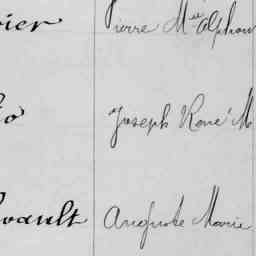 vier Pierre Mie Alphon
o Joseph René M
vault Auguste Marie